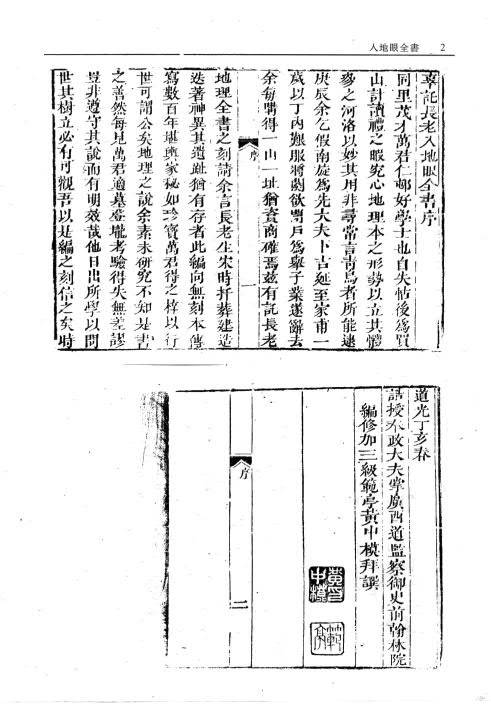 入地眼全書 2
辜託長老入地眼全書序
同里茂才萬君仁邨好學士也自失怙後爲買
山計讀禮之暇究心地理本之形勢以立其體
參之河洛以妙其用非尋常言靑鳥者所能逮
庚辰余乞假南旋爲先大夫卜吉延至家甫一
歲以丁內艱服將闋欲閉戶爲舉子業遂辭去
余每購得一山一址猶資商確焉茲有託長老
地理全書之刻請余言長老生宋時扞葬建造
迭著神異其遺趾猶有存者此編向無刻本傳
寫數百年堪輿家秘如珍寶萬君得之梓以行
世可謂公矣地理之說余素未硏究不知是書
之善然每見萬君適墓登壠考驗得失無差謬
豈非遵守其說而有明效哉他日出所學以問
世其樹立必有可觀吾以是編之刻信之矣時
序
一
道光丁亥春
誥授奉政大夫掌廣西道監察御史前翰林院
編修加三級範亭黃中模拜譔
黃印
中模
範亭
序
二